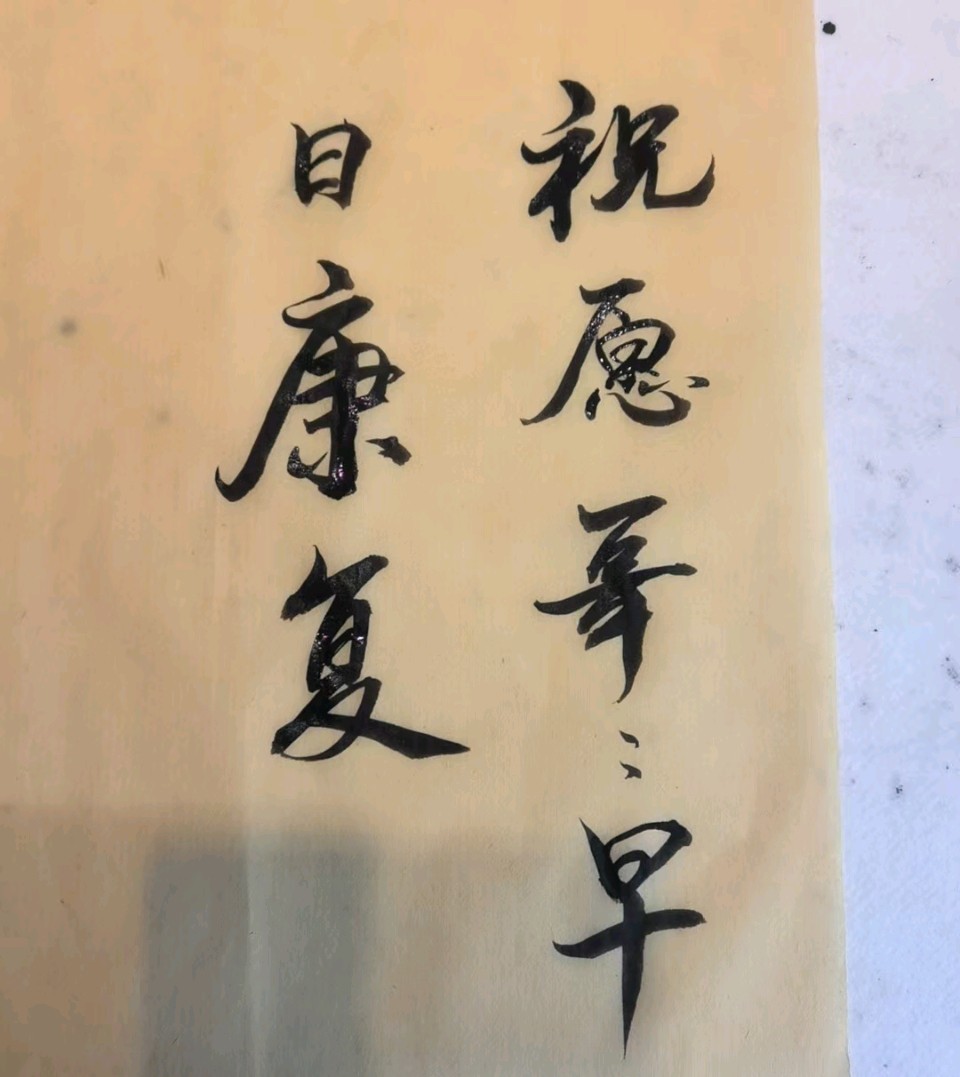 祝愿〻早
日康复